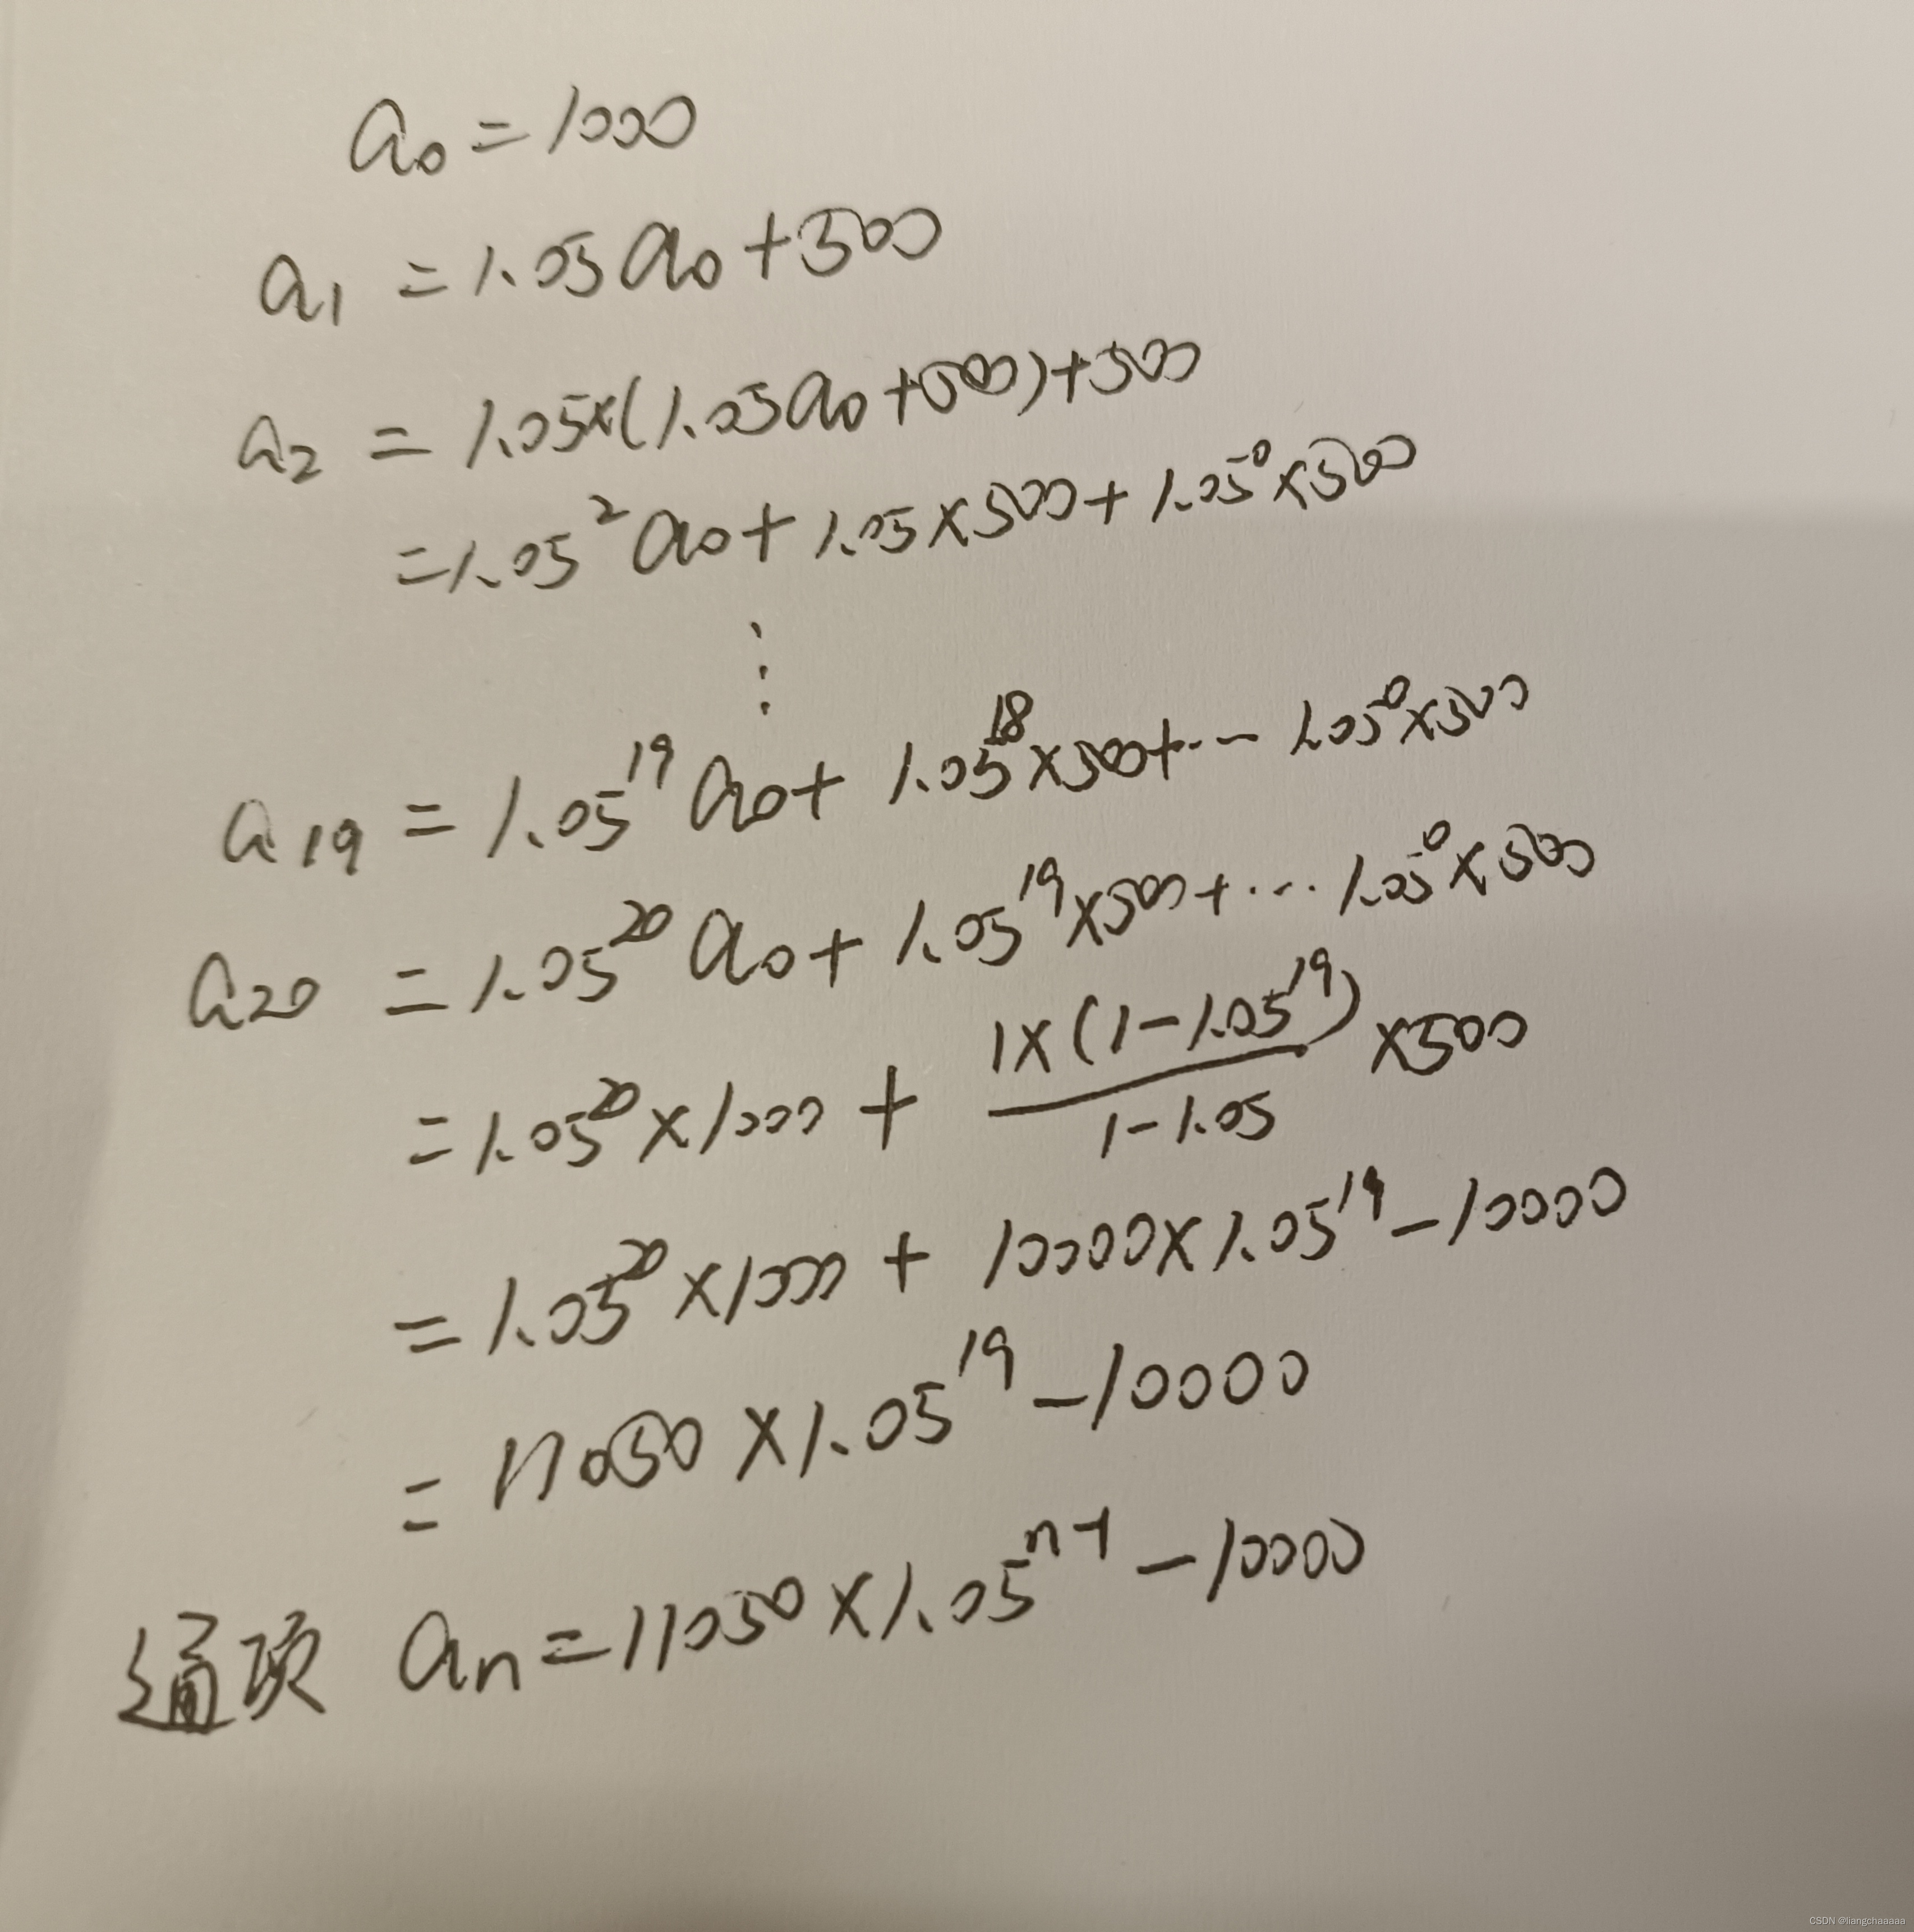 a₀ = 1000
a₁ = 1.05a₀+500
a₂ = 1.05×(1.05a₀+500)+500
=1.05²a₀+1.05×500+1.05⁰×500
⋮
a₁₉ = 1.05¹⁹a₀+1.05¹⁸×500+··· 1.05⁰×500
a₂₀ = 1.05²⁰a₀+1.05¹⁹×500+··· 1.05⁰×500
=1.05²⁰×1000 + 1×(1-1.05¹⁹)/1-1.05 ×500
=1.05²⁰×1000 + 10000×1.05¹⁹-10000
= 11050×1.05¹⁹-10000
通项 aₙ=11050×1.05ⁿ⁻¹-10000
CSDN @liangchaaaaa